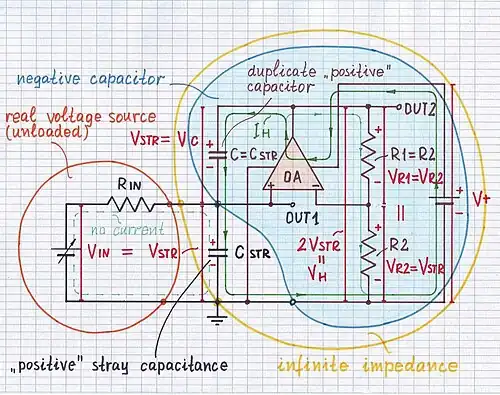 negative capacitor
duplicate „positive"
capacitor
real voltage source
(unloaded)
VSTR = VC
IH
OUT2
C = CSTR
OA
R1=R2
VR1=VR2
V+
RIN
no current
OUT1
VIN = VSTR
CSTR
2VSTR
=
VH
=
R2
VR2=VSTR
„positive" stray capacitance
infinite impedance